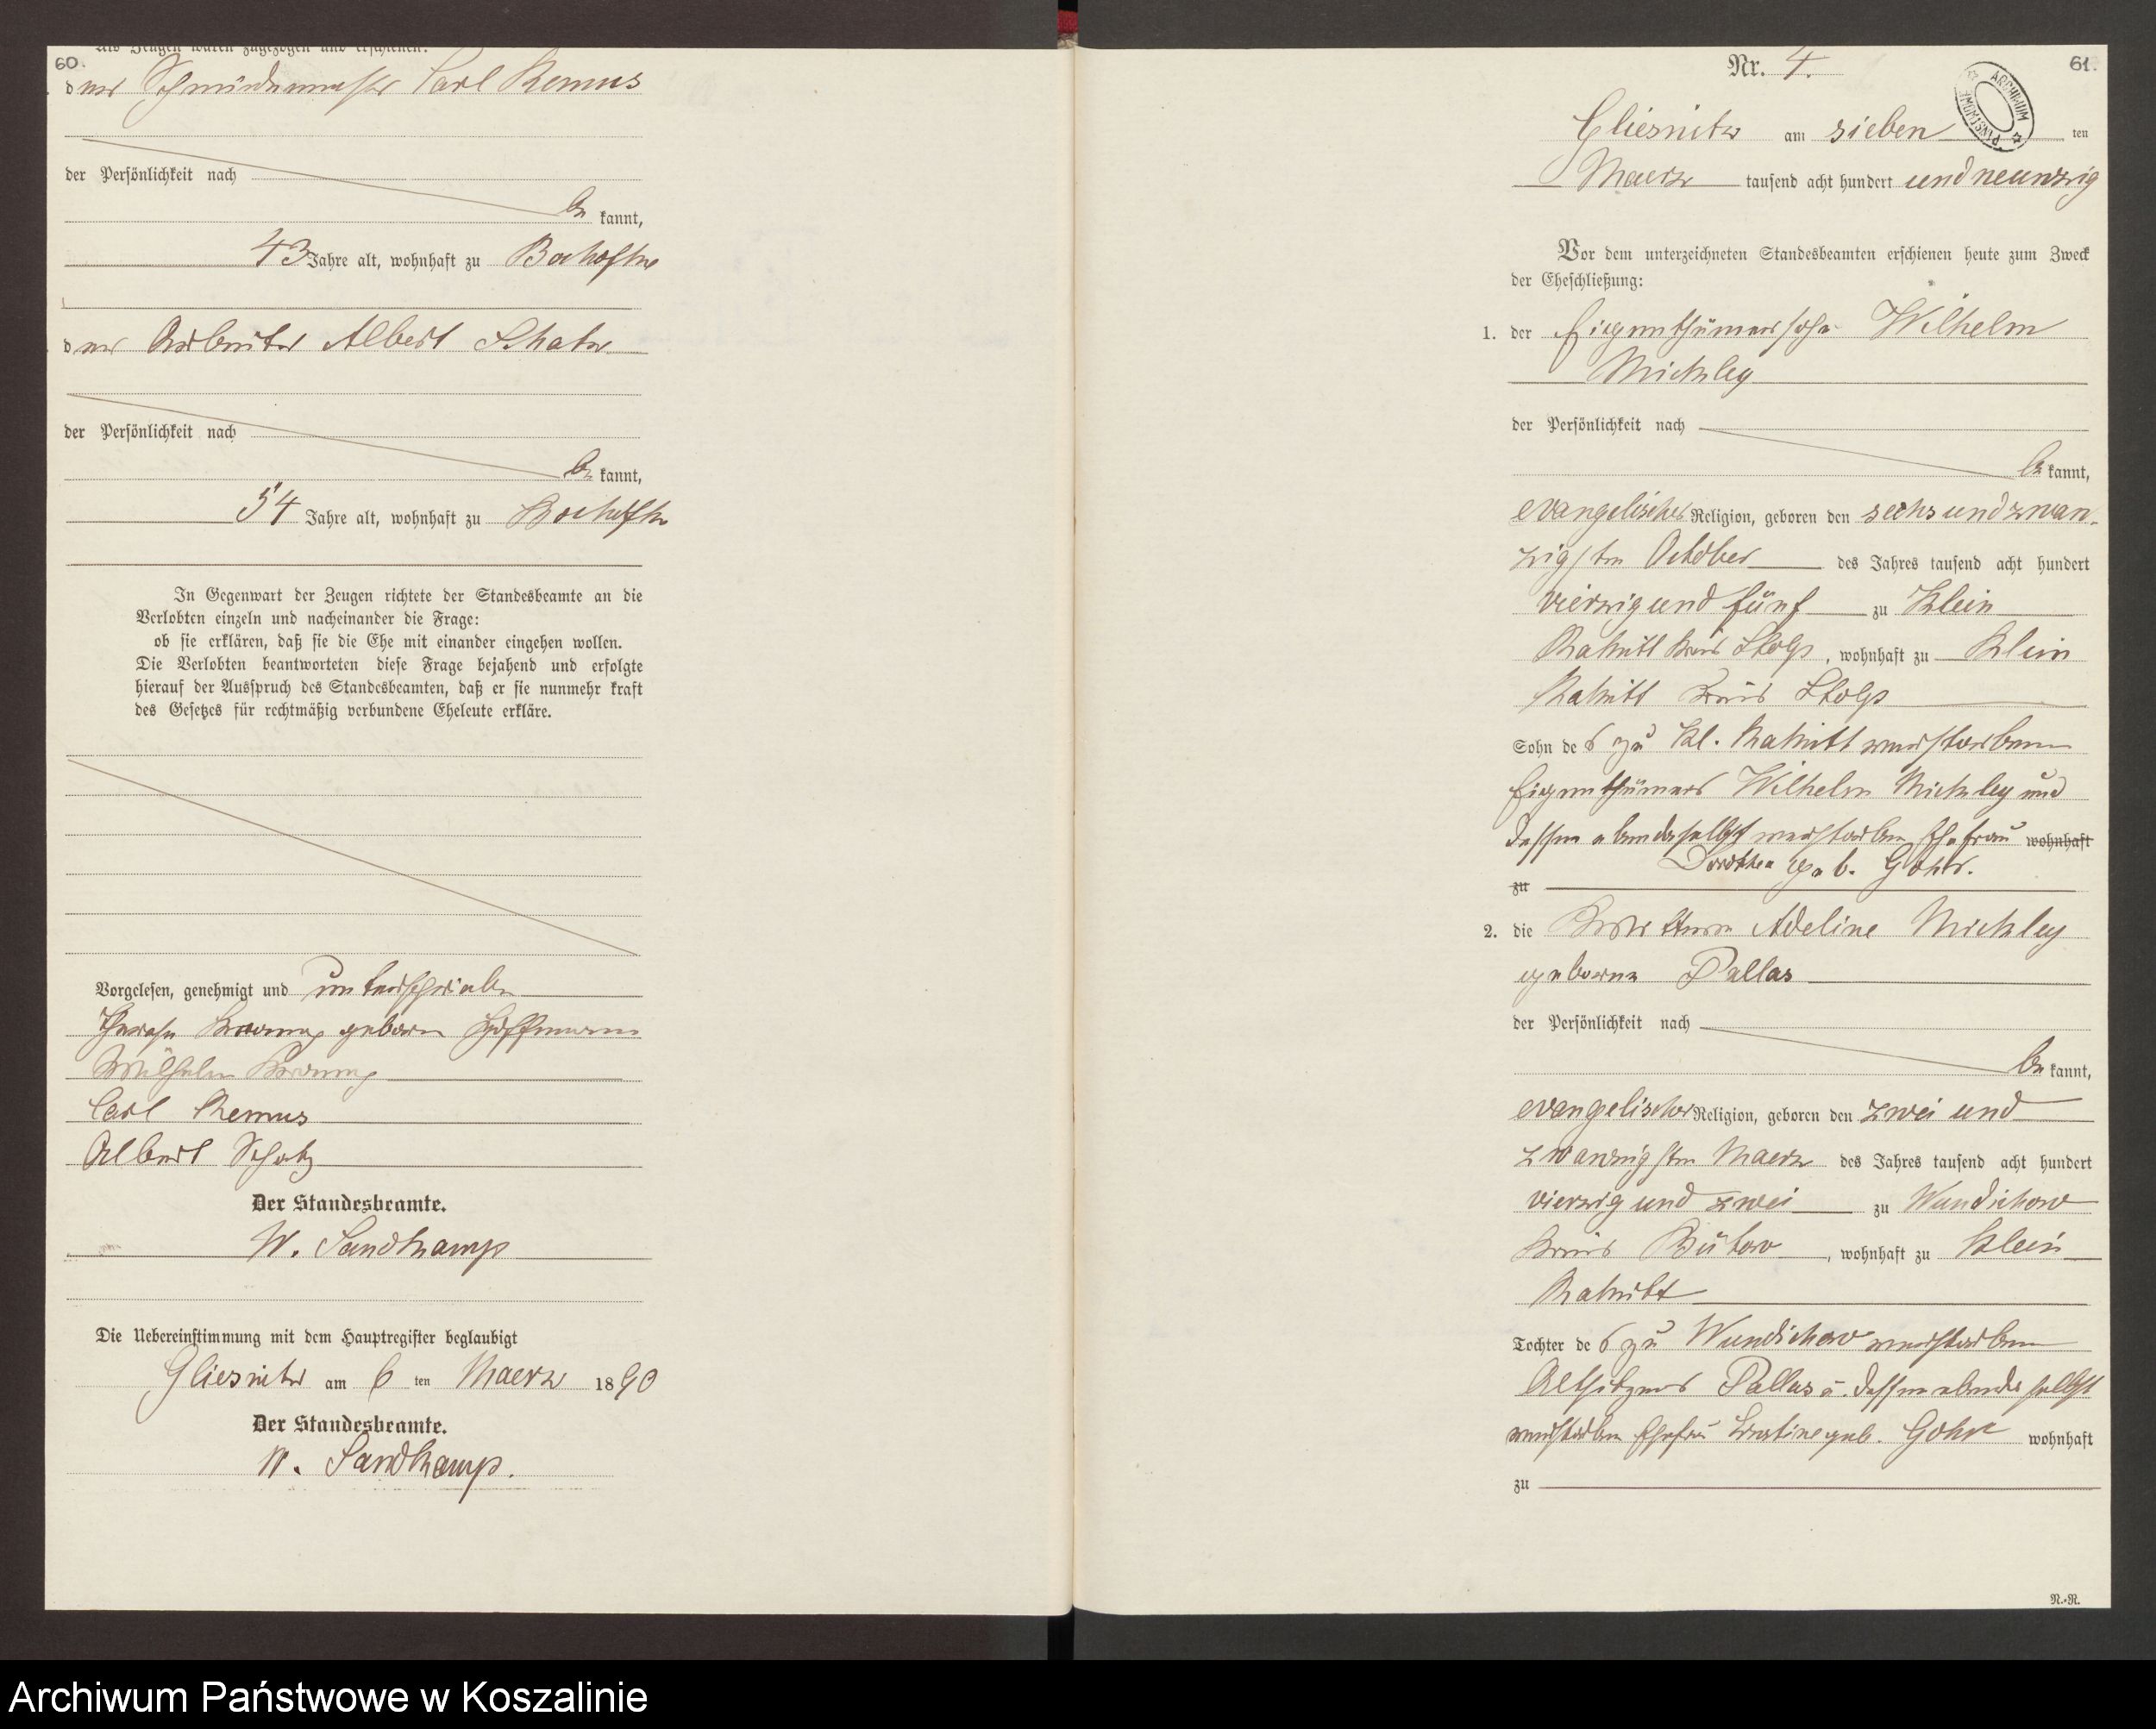 Als Zeugen waren zugezogen und erschienen:
60.
der Schmiedemeister Carl Remus
der Persönlichkeit nach
be kannt,
43 Jahre alt, wohnhaft zu Bochofke
der Arbeiter Albert Schatz
der Persönlichkeit nach
be kannt,
54 Jahre alt, wohnhaft zu Bochofke
In Gegenwart der Zeugen richtete der Standesbeamte an die
Verlobten einzeln und nacheinander die Frage:
ob sie erklären, daß sie die Ehe mit einander eingehen wollen.
Die Verlobten beantworteten diese Frage bejahend und erfolgte
hierauf der Ausspruch des Standesbeamten, daß er sie nunmehr kraft
des Gesetzes für rechtmäßig verbundene Eheleute erkläre.
Vorgelesen, genehmigt und unterschrieben
geboren Hoffmann
Wilhelm
Carl Remus
Albert Schatz
Der Standesbeamte.
W. Sandkamp
Die Uebereinstimmung mit dem Hauptregister beglaubigt
Gliesnitz am 6 ten Maerz 1890
Der Standesbeamte.
W. Sandkamp.
Nr. 4.
61.
ARCHIWUM PAŃSTWOWE
Gliesnitz am sieben ten
Maerz tausend acht hundert und neunzig
Vor dem unterzeichneten Standesbeamten erschienen heute zum Zweck
der Eheschließung:
1. der Eigenthümersohn Wilhelm
Mickley
der Persönlichkeit nach
be kannt,
evangelischer Religion, geboren den sechsundzwan-
zigsten October des Jahres tausend acht hundert
vierzig und fünf zu Klein
Rakitt Kreis Stolp, wohnhaft zu Klein
Rakitt Kreis Stolp
Sohn des zu Kl. Rakitt verstorbenen
Eigenthümers Wilhelm Mickley und
dessen ebendaselbst verstorbenen Ehefrau wohnhaft
Dorothea geb. Gohr.
zu
2. die Adeline Mickley
geborene Pallas
der Persönlichkeit nach
be kannt,
evangelischer Religion, geboren den zwei und
zwanzigsten Maerz des Jahres tausend acht hundert
vierzig und zwei zu Wundichow
Kreis Bütow, wohnhaft zu Klein
Rakitt
Tochter des zu Wundichow verstorbenen
Altsitzers Pallas u. dessen ebendaselbst
verstorbenen Ehefrau geb. Gohr wohnhaft
zu
N.-R.
Archiwum Państwowe w Koszalinie